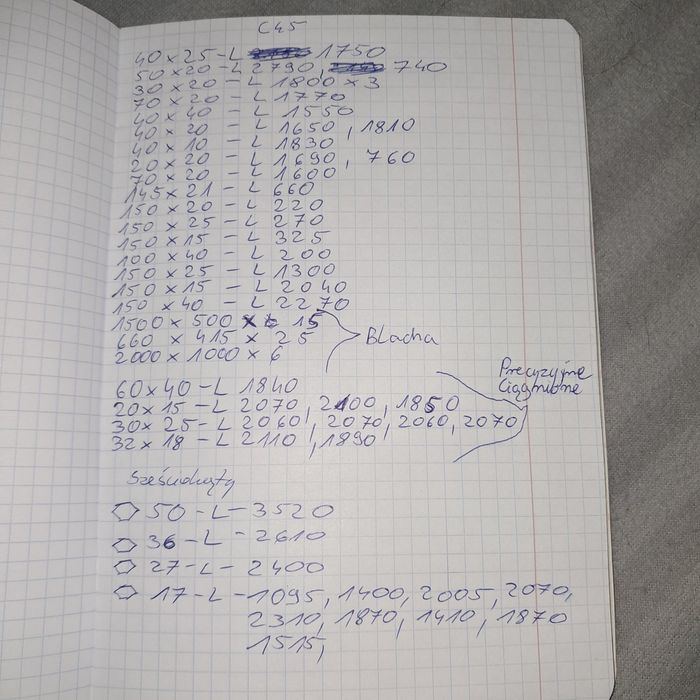 C45
40 x 25 - L 1750
50 x 20 - L 2790, 740
30 x 20 - L 1800 x 3
70 x 20 - L 1770
40 x 40 - L 1550
40 x 20 - L 1650, 1810
40 x 10 - L 1830
20 x 20 - L 1690, 760
70 x 20 - L 1600
145 x 21 - L 660
150 x 20 - L 220
150 x 25 - L 270
150 x 15 - L 325
100 x 40 - L 200
150 x 25 - L 1300
150 x 15 - L 2040
150 x 40 - L 2270
1500 x 500 x 15
660 x 415 x 25
2000 x 1000 x 6
Blacha
60 x 40 - L 1840
20 x 15 - L 2070, 2100, 1850
30 x 25 - L 2060, 2070, 2060, 2070
32 x 18 - L 2110, 1890
Precyzyjne
Ciągnione
Sześciokąty
50 - L - 3520
36 - L - 2610
27 - L - 2400
17 - L - 1095, 1400, 2005, 2070,
2310, 1870, 1410, 1870
1515,